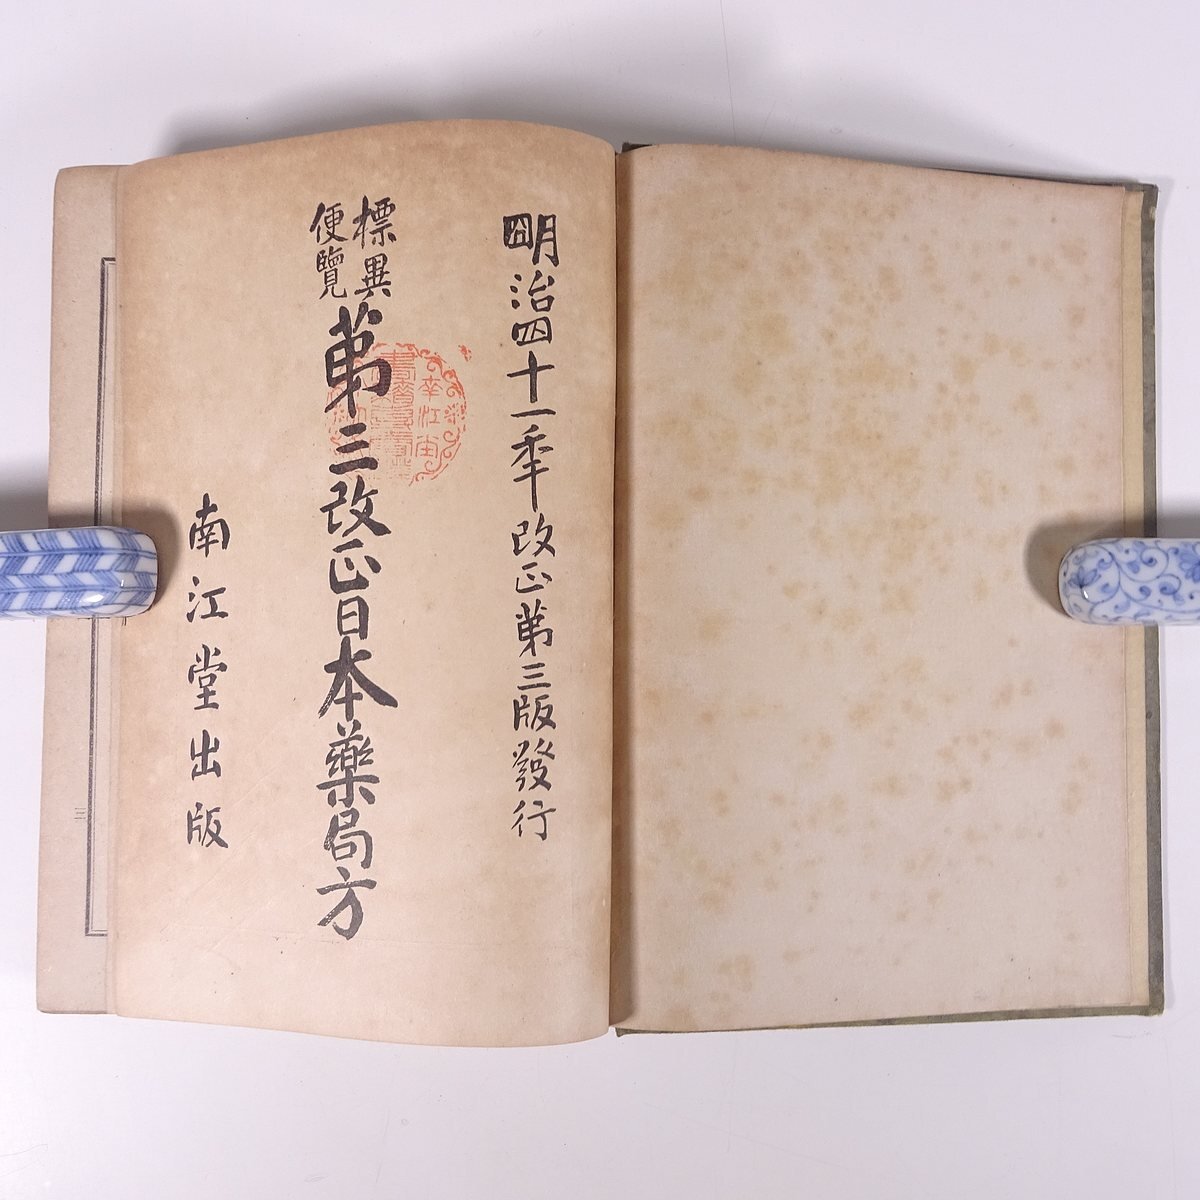 明治四十一年改正第三版發行
標異
便覽
第三改正日本藥局方
南江堂出版